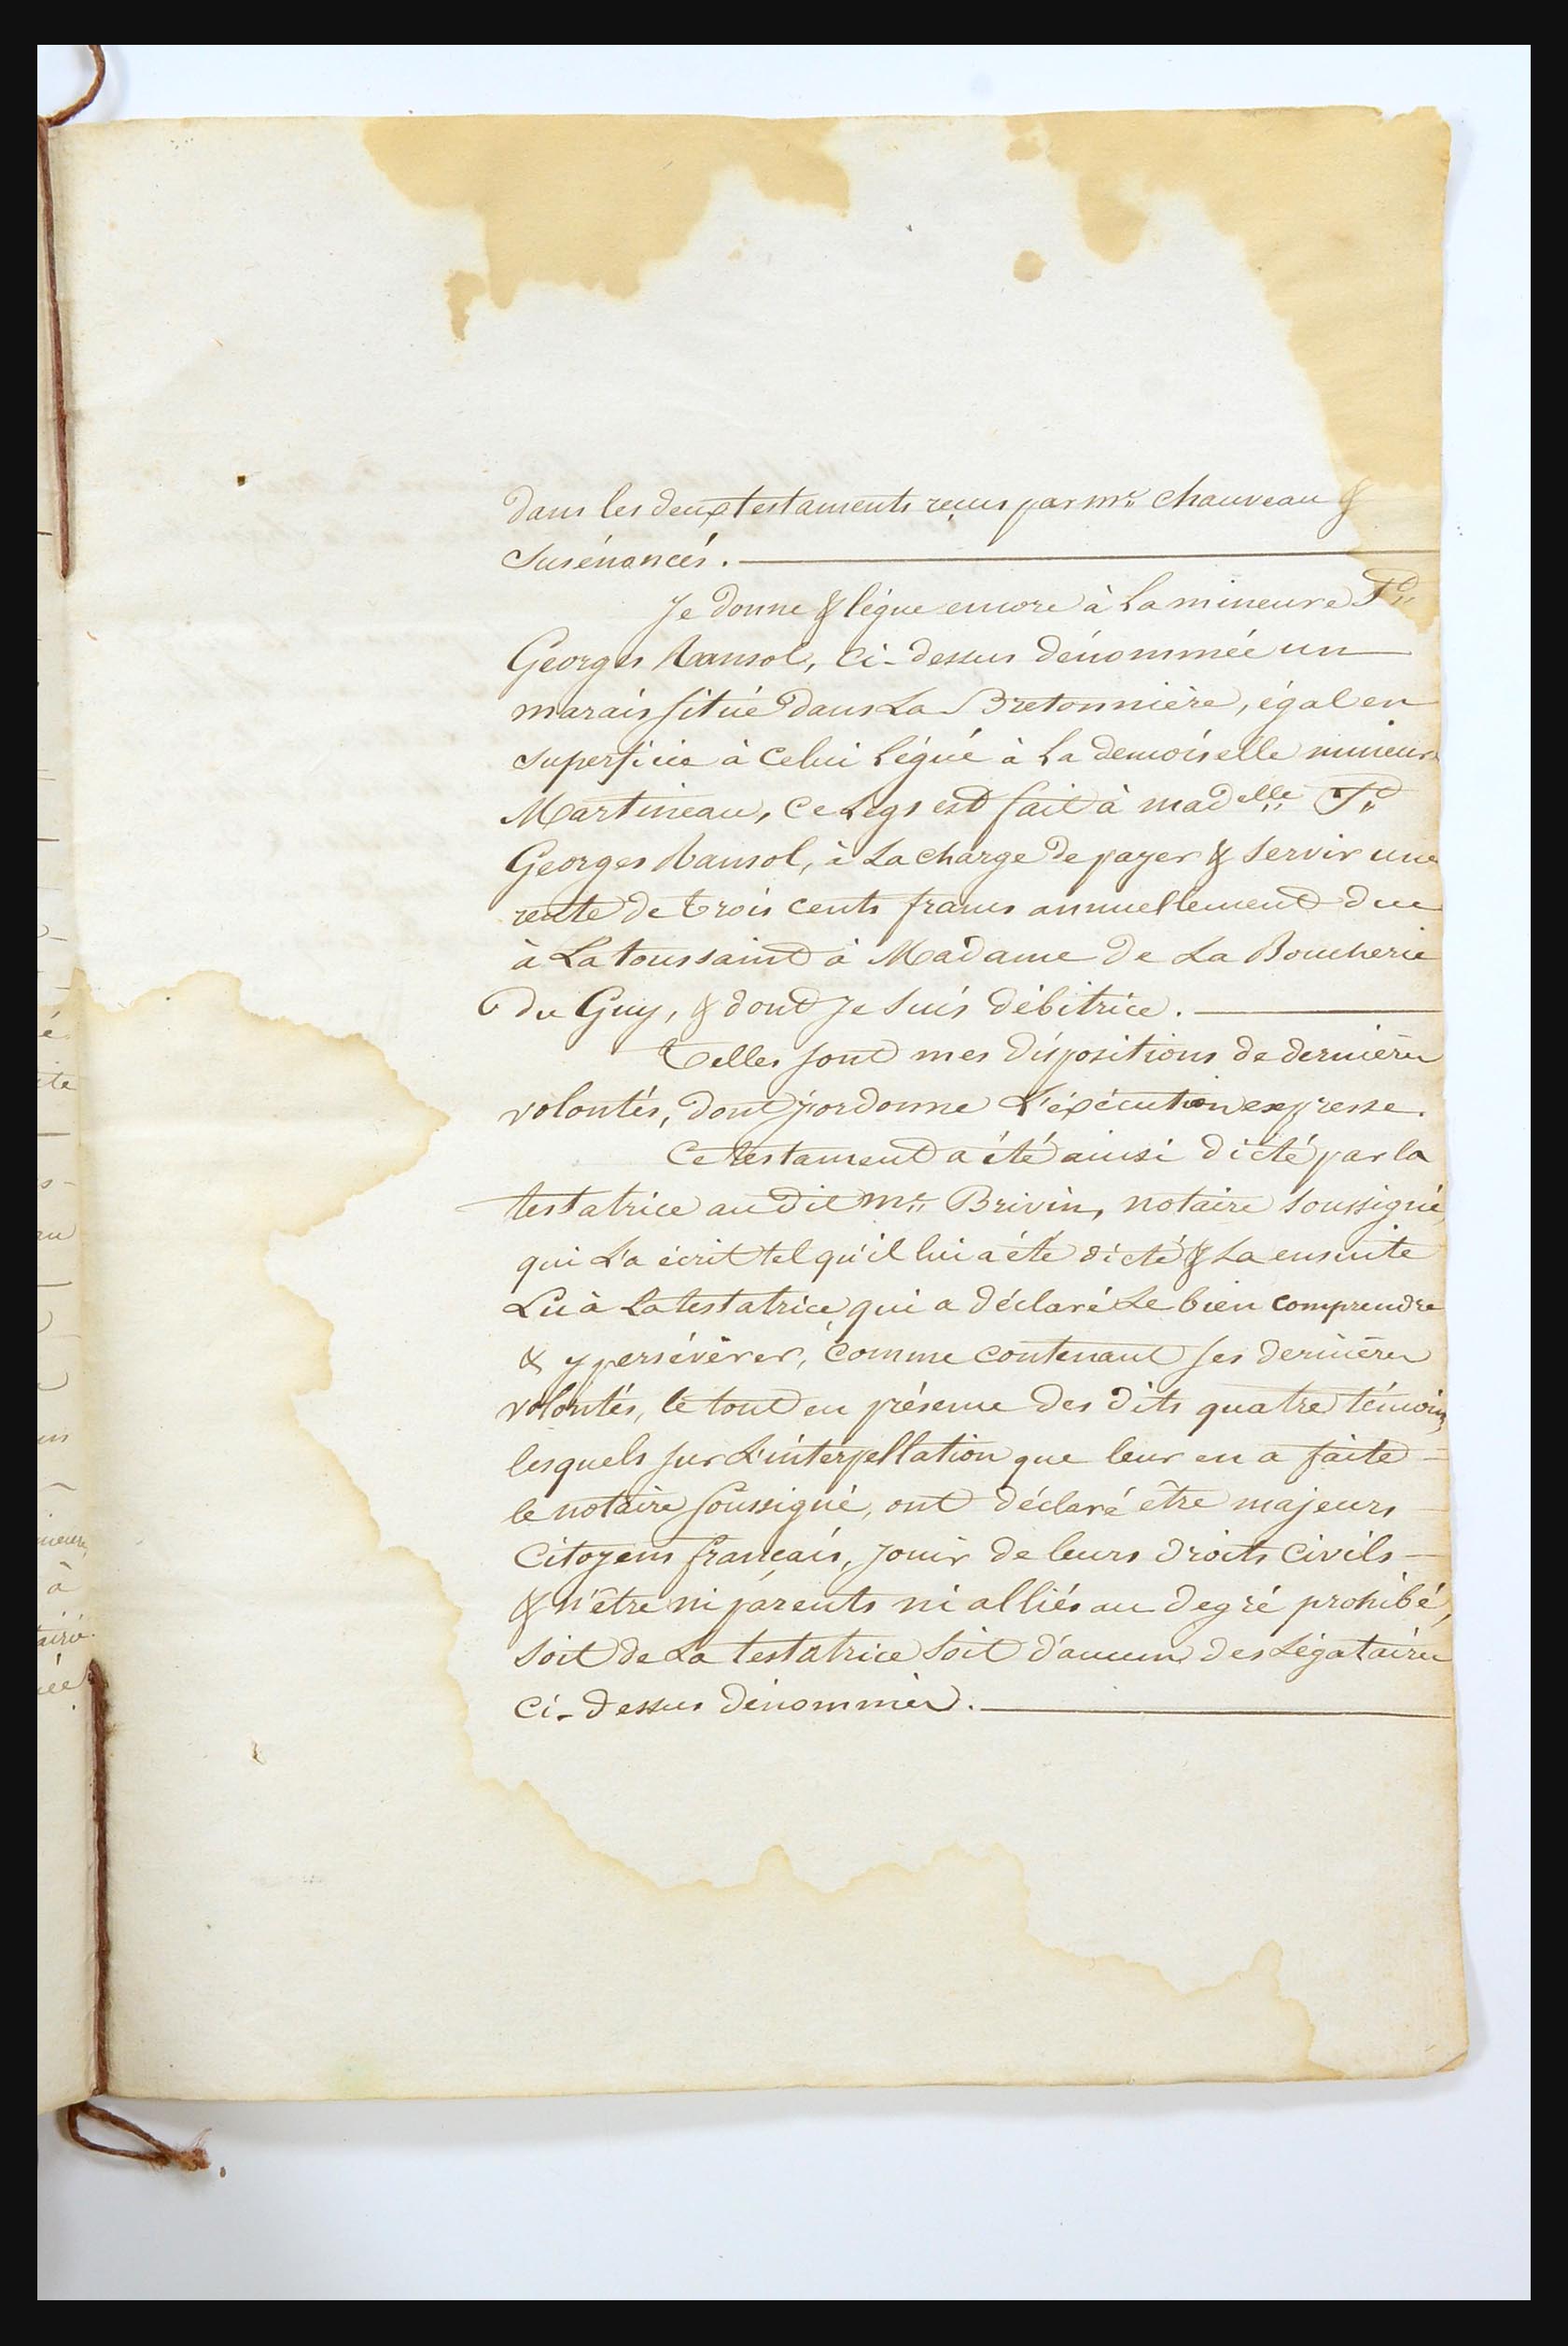 dans les deux testaments reçus par mr. Chauveau &
susénoncés.
Je donne & lègue encore à la mineure
Georges Ransol, ci-dessus dénommée un
marais situé dans La Bretonnière, égal en
superficie à celui légué à la demoiselle mineure
Martineau, ce legs est fait à madelle
Georges Ransol, à la charge de payer & servir une
rente de trois cents francs annuellement due
à la toussaint à Madame de La Boucherie
du Guy, & dont je suis débitrice.
Telles sont mes dispositions de dernières
volontés, dont j'ordonne l'éxécution expresse.
Ce testament a été ainsi dicté par la
testatrice au dit me. Brivin, notaire soussigné,
qui l'a écrit tel qu'il lui a été dicté & la ensuite
Lu à la testatrice, qui a déclaré le bien comprendre
& y persévérer, comme contenant ses dernières
volontés, le tout en présence des dits quatre témoins,
lesquels sur l'interpellation que leur en a faite
le notaire soussigné, ont déclaré être majeurs
Citoyens français, jouir de leurs droits civils
& n'être ni parents ni alliés au degré prohibé,
soit de la testatrice soit d'aucun des légataires
ci-dessus dénommés.
é
ite
s-
au
ns
mineure,
à
taire.
ée